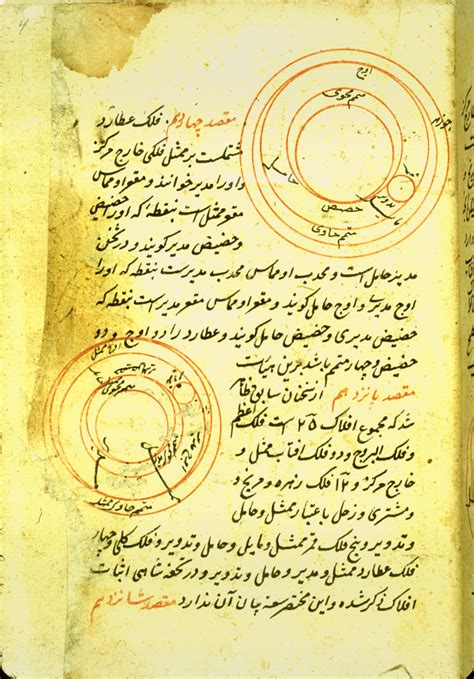 مقصد چهاردهم فلک عطارد
مشتملست بر ممثل و فلکی خارج مرکز
و او را مدیر خوانند و مقعر او مماس
مقعر ممثل است بنقطه که او را حضیض
و حضیض مدیر کویند و در ثخن
مدیر حامل است و محدب او مماس محدب مدیرست بنقطه که او را
اوج مدیری و اوج حامل کویند و مقعر او مماس مقعر مدیرست بنقطه که
حضیض مدیری و حضیض حامل کویند و عطارد را دو اوج و دو
حضیض و چهار متمم باشد برین هیات
مقصد پانزدهم از سخنان سابق ظاهر
شد که مجموع افلاک ۲۵ است فلک اعظم
و فلک البروج و دو فلک افتاب ممثل و
خارج مرکز و ۱۲ افلاک زهره و مریخ و
و مشتری و زحل باعتبار ممثل و حامل
و تدویر و پنج فلک قمر ممثل و مایل و حامل و تدویر و فلک کلی و چهار
فلک عطارد ممثل و مدیر و حامل و تدویر و در تحفه شاهی اثبات
افلاک ذکر شده و این مختصر سعه بیان آن ندارد مقصد شانزدهم
اوج
متمم محوی
جوزهر
حامل
تدویر
مایل
حضیض
متمم حاوی
متمم محوی
متمم حاوی ممثل